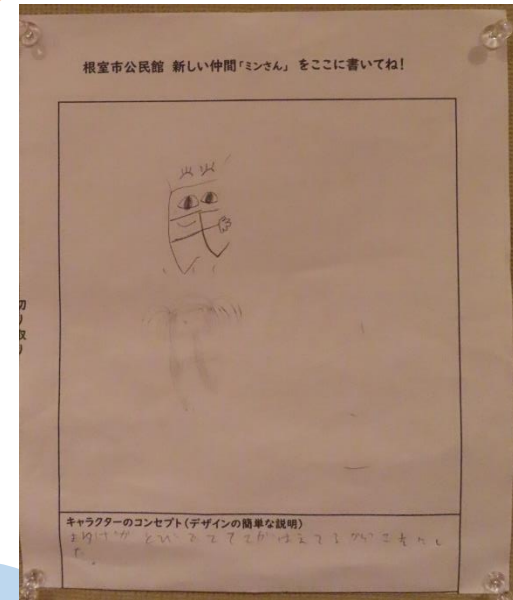 根室市公民館 新しい仲間「ミンさん」 をここに書いてね！
民
切り取り
キャラクターのコンセプト（デザインの簡単な説明）
まゆげが とび でて てが はえてる
た。